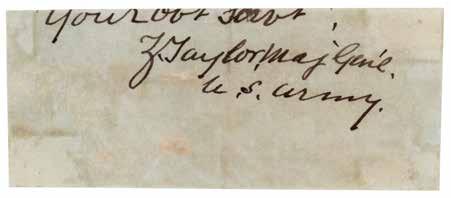 Your Obt Servt,
Z. Taylor, Maj Genl.
U. S. Army.